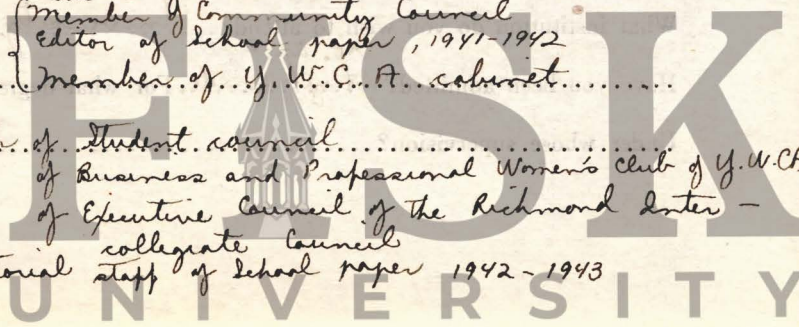 Member of Community Council
Editor of School paper, 1941-1942
Member of Y. W. C. A. cabinet
of Student council
of Business and Professional Women's Club of Y.W.CA
of Executive Council of the Richmond Inter -
collegiate Council
torial staff of School paper 1942 - 1943
FISK
UNIVERSITY